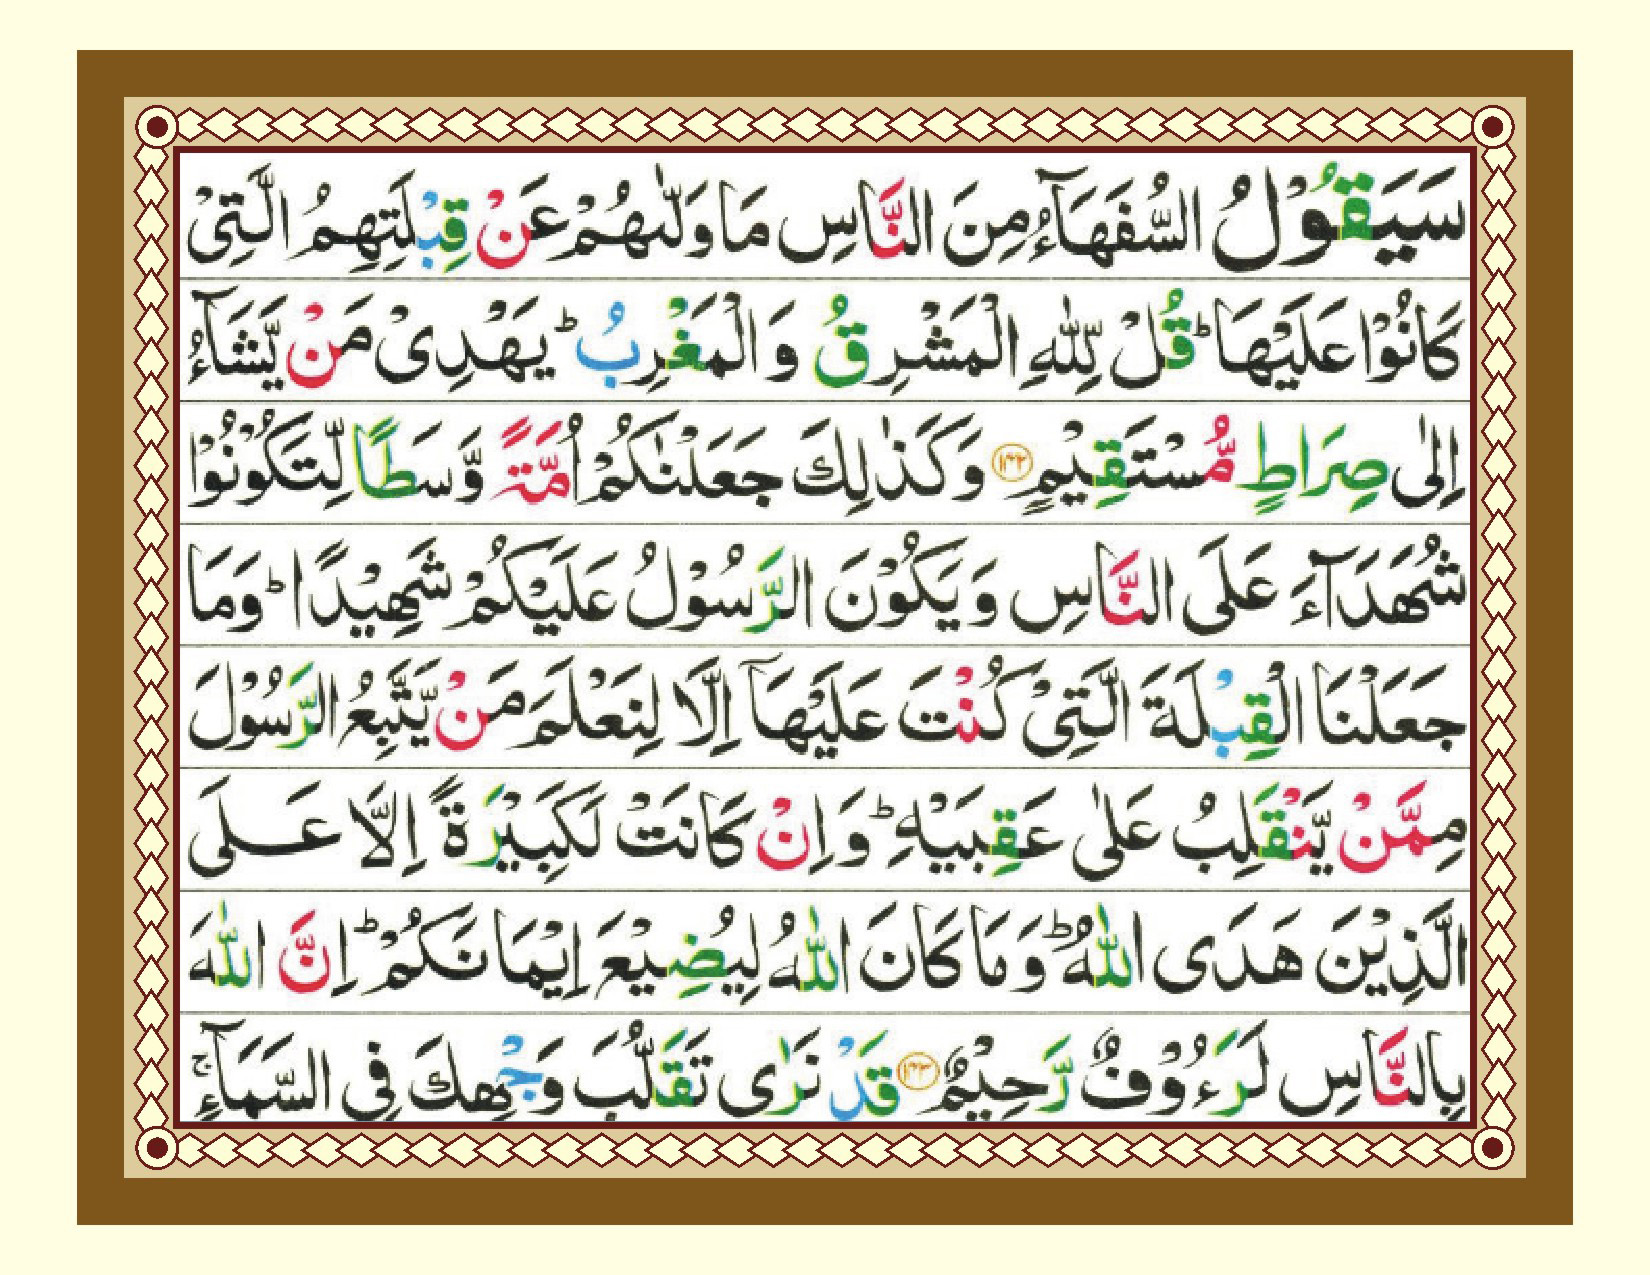 سَيَقُوۡلُ السُّفَهَآءُ مِنَ النَّاسِ مَا وَلّٰٮهُمۡ عَنۡ قِبۡلَتِهِمُ الَّتِىۡ
كَانُوۡا عَلَيۡهَا ؕ قُلۡ لِّلّٰهِ الۡمَشۡرِقُ وَ الۡمَغۡرِبُ ؕ يَهۡدِىۡ مَنۡ يَّشَآءُ
اِلٰى صِرَاطٍ مُّسۡتَقِيۡمٍ ۝۱۴۲ وَكَذٰلِكَ جَعَلۡنٰكُمۡ اُمَّةً وَّسَطًا لِّتَکُوۡنُوۡا
شُهَدَآءَ عَلَى النَّاسِ وَيَكُوۡنَ الرَّسُوۡلُ عَلَيۡكُمۡ شَهِيۡدًا ؕ وَمَا
جَعَلۡنَا الۡقِبۡلَةَ الَّتِىۡ كُنۡتَ عَلَيۡهَآ اِلَّا لِنَعۡلَمَ مَنۡ يَّتَّبِعُ الرَّسُوۡلَ
مِمَّنۡ يَّنۡقَلِبُ عَلٰى عَقِبَيۡهِ ؕ وَاِنۡ كَانَتۡ لَكَبِيۡرَةً اِلَّا عَلَى
الَّذِيۡنَ هَدَى اللّٰهُ ؕ وَمَا كَانَ اللّٰهُ لِيُضِيۡعَ اِيۡمَانَكُمۡ ؕ اِنَّ اللّٰهَ
بِالنَّاسِ لَرَءُوۡفٌ رَّحِيۡمٌ ۝۱۴۳ قَدۡ نَرٰى تَقَلُّبَ وَجۡهِكَ فِى السَّمَآءِ ۚ